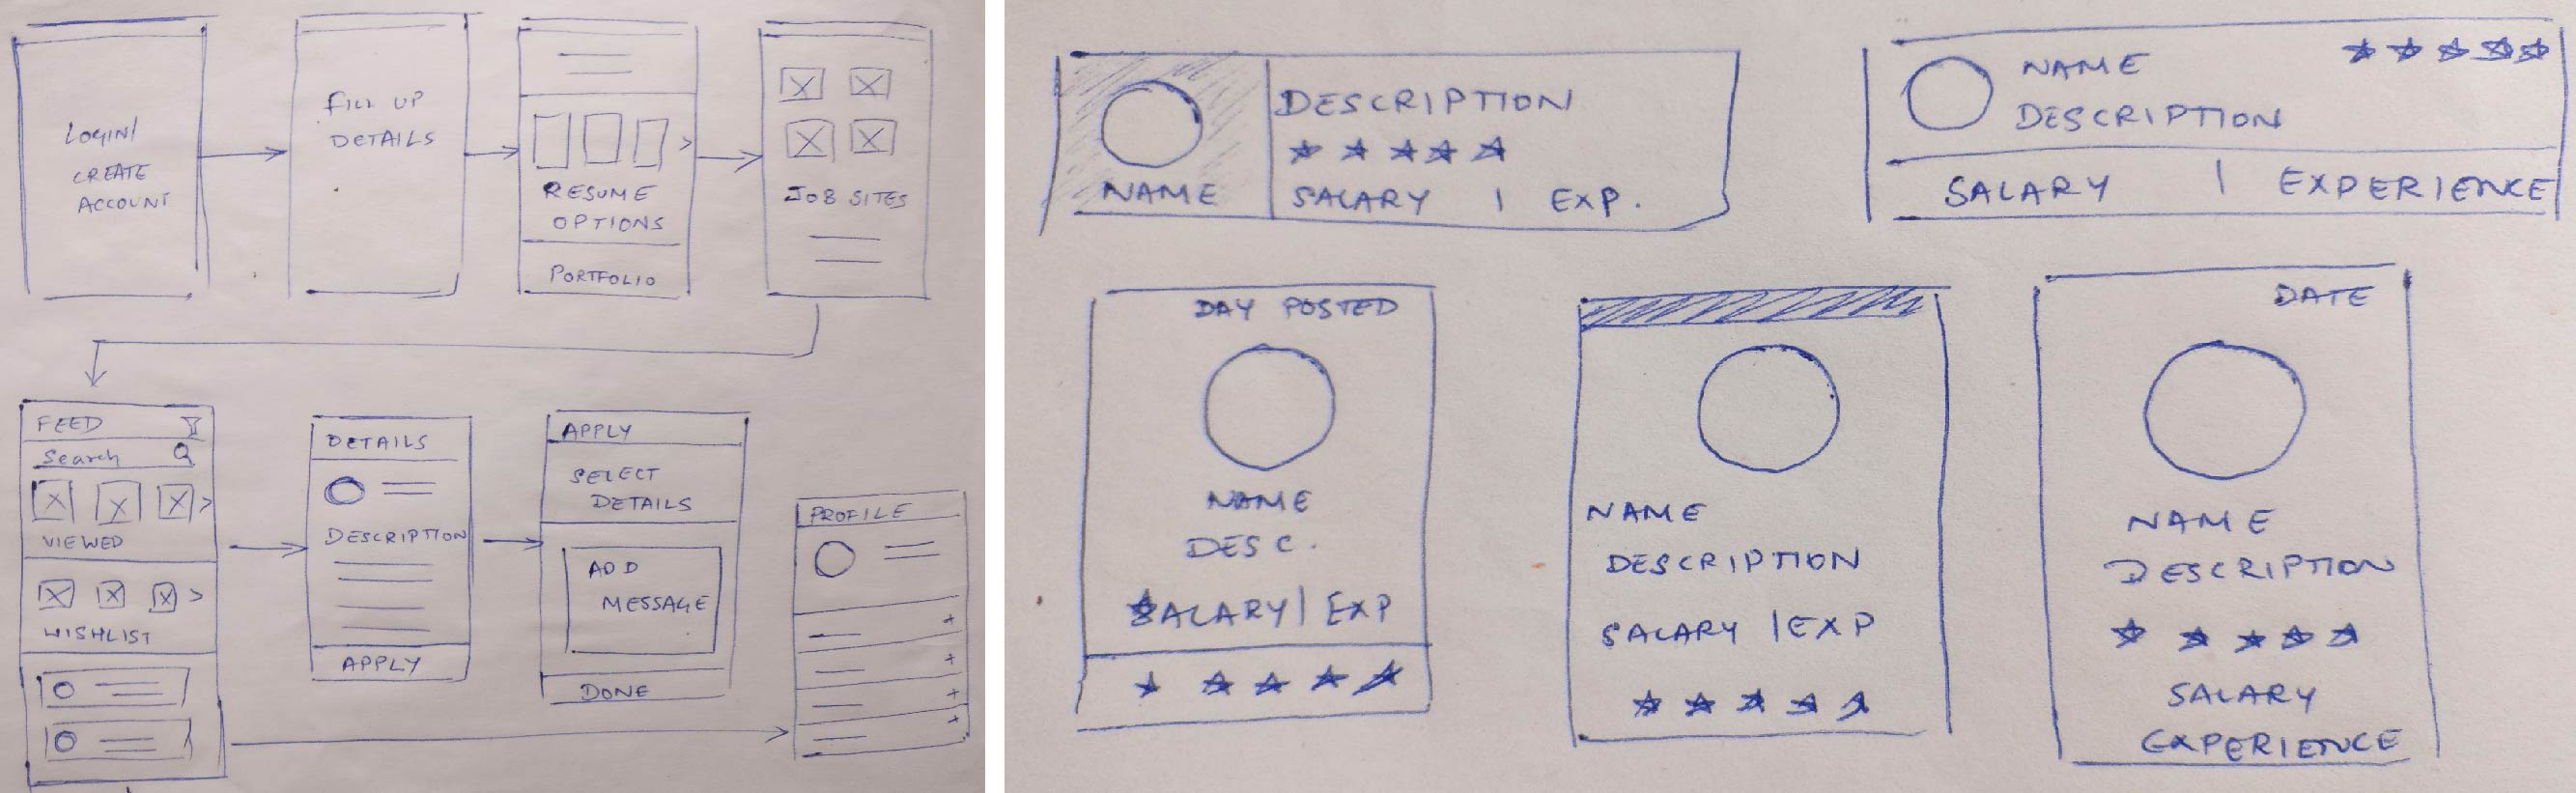 LOGIN/
CREATE
ACCOUNT
FILL UP
DETAILS
RESUME
OPTIONS
PORTFOLIO
JOB SITES
FEED
Search
VIEWED
WISHLIST
DETAILS
DESCRIPTION
APPLY
APPLY
SELECT
DETAILS
ADD
MESSAGE
DONE
PROFILE
NAME
DESCRIPTION
SALARY | EXP.
NAME
DESCRIPTION
SALARY | EXPERIENCE
DAY POSTED
NAME
DESC.
SALARY | EXP
NAME
DESCRIPTION
SALARY | EXP
DATE
NAME
DESCRIPTION
SALARY
EXPERIENCE